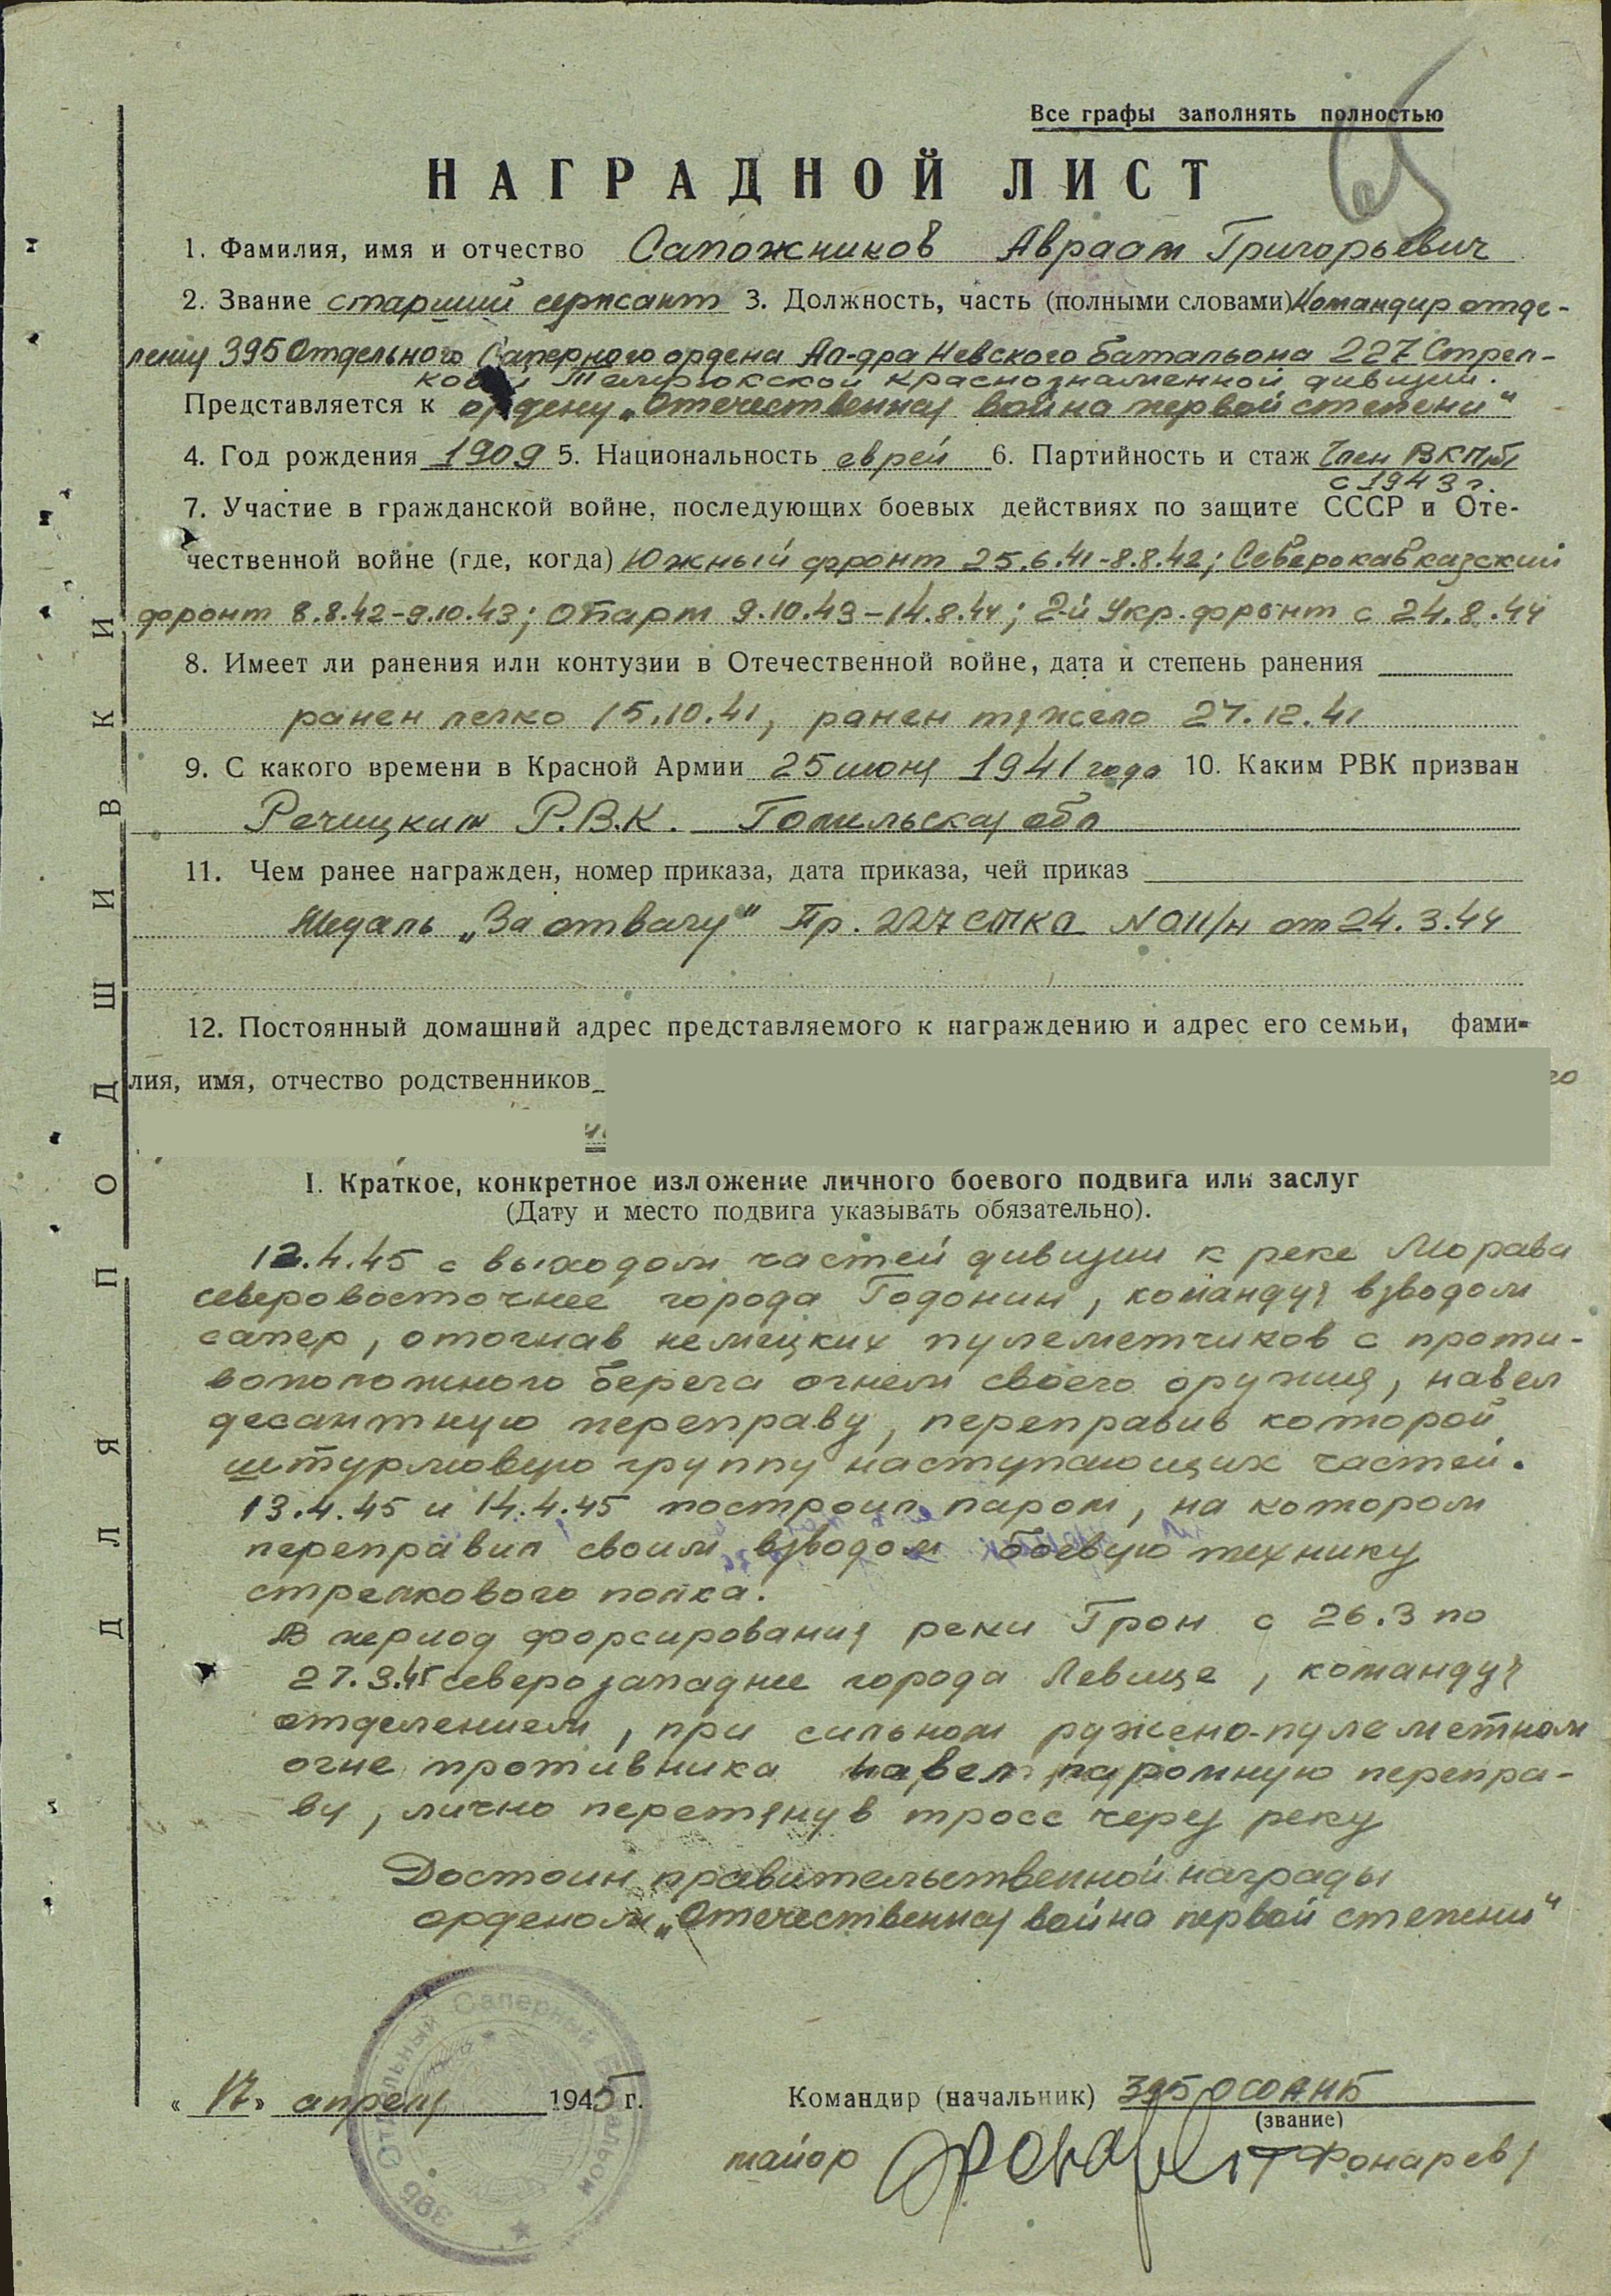 Все графы заполнять полностью
НАГРАДНОЙ ЛИСТ
1. Фамилия, имя и отчество Сапожников Авраам Григорьевич
2. Звание старший сержант 3. Должность, часть (полными словами) Командир отде-
ления 395 Отдельного Саперного ордена Ал-дра Невского батальона 227 Стрел-
ковой Темрюкской краснознаменной дивизии.
Представляется к ордену „Отечественная война первой степени"
4. Год рождения 1909 5. Национальность еврей 6. Партийность и стаж Член ВКП/б/
с 1943 г.
7. Участие в гражданской войне, последующих боевых действиях по защите СССР и Оте-
чественной войне (где, когда) Южный фронт 25.6.41-8.8.42; Северокавказский
фронт 8.8.42-9.10.43; ОПарм 9.10.43-14.8.44; 2й Укр. фронт с 24.8.44
8. Имеет ли ранения или контузии в Отечественной войне, дата и степень ранения
ранен легко 15.10.41, ранен тяжело 27.12.41
9. С какого времени в Красной Армии 25 июня 1941 года 10. Каким РВК призван
Речицким Р.В.К. Гомельская обл
11. Чем ранее награжден, номер приказа, дата приказа, чей приказ
Медаль „За отвагу" Пр. 227 СТКД №011/н от 24.3.44
12. Постоянный домашний адрес представляемого к награждению и адрес его семьи, фами-
лия, имя, отчество родственников
I. Краткое, конкретное изложение личного боевого подвига или заслуг
(Дату и место подвига указывать обязательно).
12.4.45 с выходом частей дивизии к реке Морава
северовосточнее города Годонин, командуя взводом
сапер, отогнав немецких пулеметчиков с проти-
воположного берега огнем своего оружия, навел
десантную переправу, переправив которой
штурмовую группу наступающих частей.
13.4.45 и 14.4.45 построил паром, на котором
переправил своим взводом боевую технику
стрелкового полка.
В период форсирования реки Грон с 26.3 по
27.3.45 северозападнее города Левице, командуя
отделением, при сильном ружено-пулеметном
огне противника навел паромную перепра-
ву, лично перетянув тросс через реку
Достоин правительственной награды
орденом „Отечественная война первой степени"
«17» апреля 1945 г.
Командир (начальник) 395 ОСОАНБ
(звание)
майор /Фонарев/
395 Отдельный Саперный Батальон
ДЛЯ ПОДШИВКИ